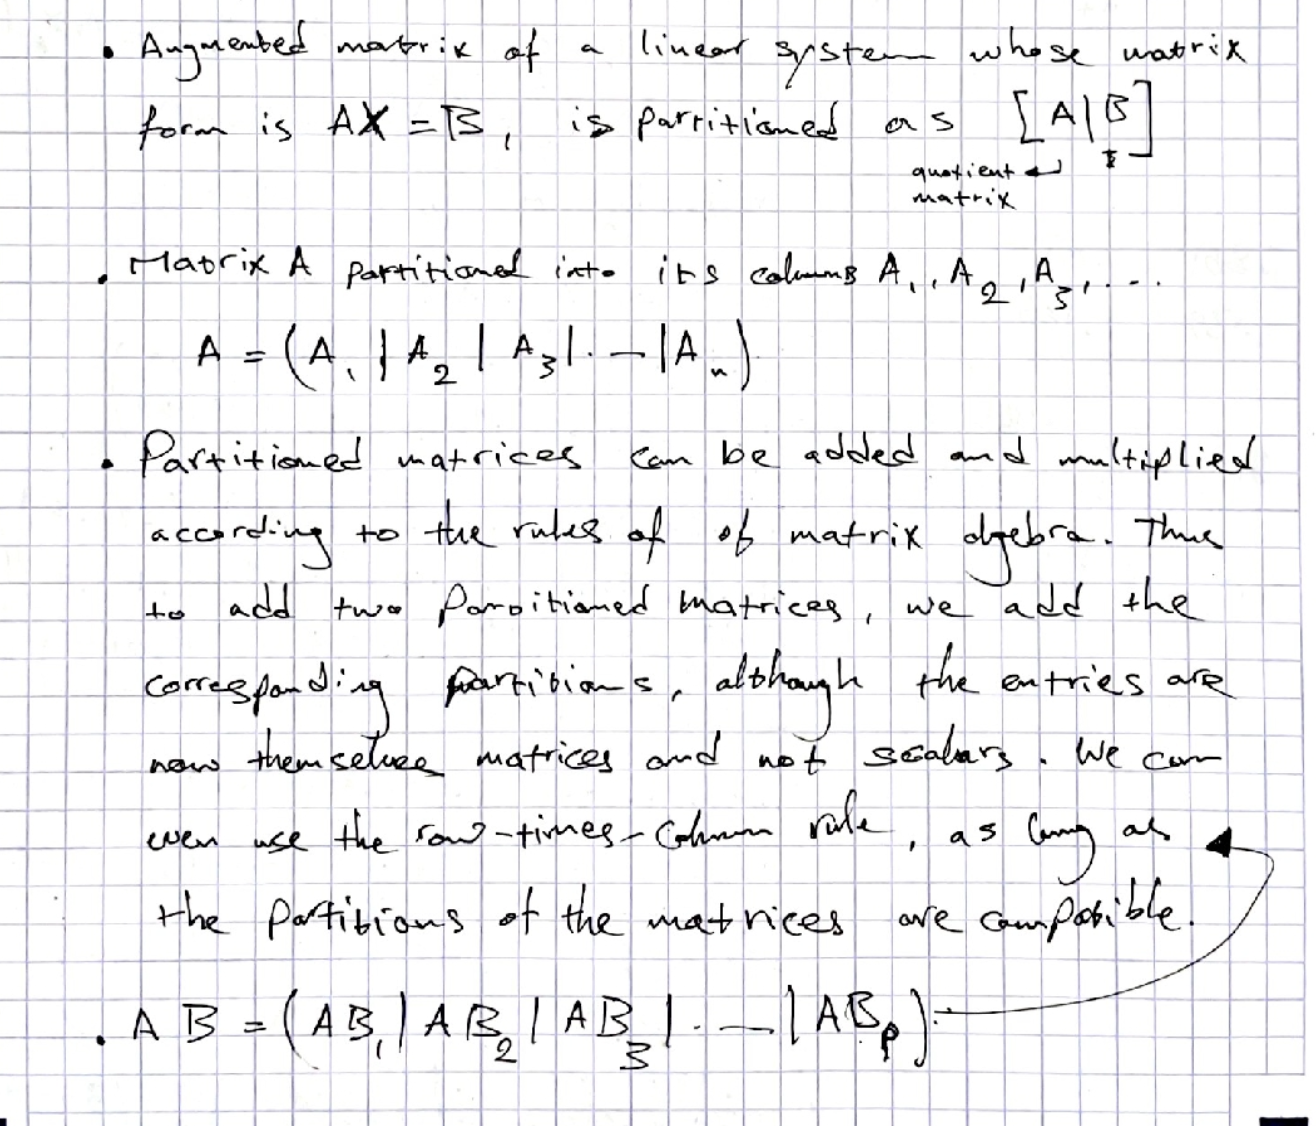 • Augmented matrix of a linear system whose matrix
form is AX = B, is partitioned as [A|B]
quotient ↵
matrix
• Matrix A partitioned into its columns A₁, A₂, A₃, ....
A = (A₁ | A₂ | A₃ | . — | Aₙ)
• Partitioned matrices can be added and multiplied
according to the rules of of matrix algebra. Thus
to add two partitioned matrices, we add the
corresponding partitions, although the entries are
now themselves matrices and not scalars. We can
even use the row-times-column rule, as long as
the partitions of the matrices are compatible.
• AB = (AB₁ | AB₂ | AB₃ | . — | ABₚ)